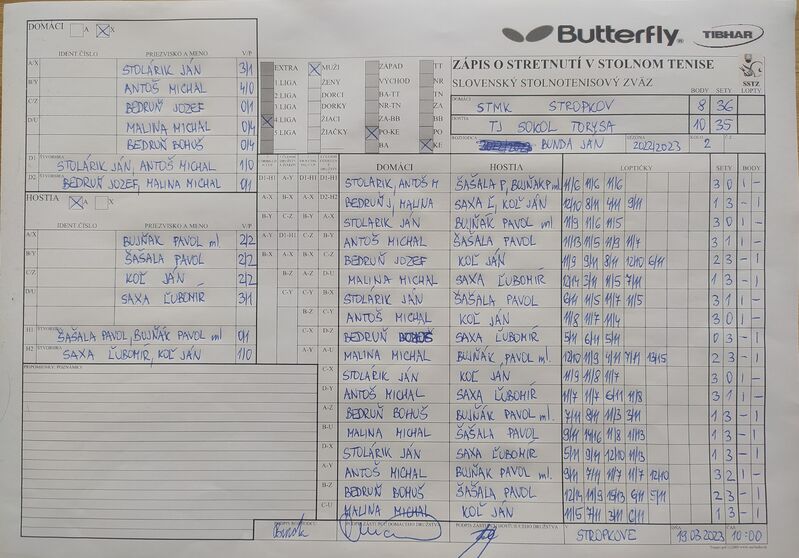 Butterfly TIBHAR
DOMÁCI A X
IDENT.ČÍSLO PRIEZVISKO A MENO V/P
A/X STOLÁRIK JÁN 3/1
B/Y ANTOŠ MICHAL 4/0
C/Z BEDRUŇ JOZEF 0/1
D/U MALINA MICHAL 0/4
BEDRUŇ BOHUŠ 0/4
D1 ŠTVORHRA
STOLÁRIK JÁN, ANTOŠ MICHAL 1/0
D2 ŠTVORHRA
BEDRUŇ JOZEF, MALINA MICHAL 0/1
HOSTIA A X
IDENT.ČÍSLO PRIEZVISKO A MENO V/P
A/X BUJŇÁK PAVOL ml. 2/2
B/Y ŠAŠALA PAVOL 2/2
C/Z KOĽ JÁN 2/2
D/U SAXA ĽUBOMÍR 3/1
H1 ŠTVORHRA
ŠAŠALA PAVOL, BUJŇÁK PAVOL ml 0/1
H2 ŠTVORHRA
SAXA ĽUBOMÍR, KOĽ JÁN 1/0
PRIPOMIENKY, POZNÁMKY:
EXTRA MUŽI ZÁPAD TT
1.LIGA ŽENY VÝCHOD NR
2.LIGA DORCI BA-TT TN
3.LIGA DORKY NR-TN ZA
4.LIGA ŽIACI ZA-BB BB
5.LIGA ŽIAČKY PO-KE PO
BA KE
ZÁPIS O STRETNUTÍ V STOLNOM TENISE
SLOVENSKÝ STOLNOTENISOVÝ ZVÄZ
SSTZ
BODY SETY LOPTY
DOMÁCI STMK STROPKOV 8 36
HOSTIA TJ SOKOL TORYSA 10 35
ROZHODCA BUNDA JÁN SEZÓNA 2022/2023 KOLO 2 Č.Z
DOMÁCI HOSTIA LOPTIČKY SETY BODY
D1-H1 STOLÁRIK, ANTOŠ M ŠAŠALA P, BUJŇÁK P ml. 11/6 11/6 11/6 3 0 1 -
D2-H2 BEDRUŇ J, MALINA SAXA Ľ, KOĽ JÁN 12/10 8/11 4/11 9/11 1 3 - 1
A-X STOLÁRIK JÁN BUJŇÁK PAVOL ml. 11/9 11/6 11/5 3 0 1 -
B-Y ANTOŠ MICHAL ŠAŠALA PAVOL 11/13 11/5 11/3 11/7 3 1 1 -
C-Z BEDRUŇ JOZEF KOĽ JÁN 11/9 9/11 8/11 12/10 6/11 2 3 - 1
D-U MALINA MICHAL SAXA ĽUBOMÍR 12/14 3/11 11/5 7/11 1 3 - 1
A-Y STOLÁRIK JÁN ŠAŠALA PAVOL 6/11 11/5 11/7 11/5 3 1 1 -
B-Z ANTOŠ MICHAL KOĽ JÁN 11/8 11/7 11/4 3 0 1 -
C-U BEDRUŇ BOHUŠ SAXA ĽUBOMÍR 5/11 6/11 5/11 0 3 - 1
D-X MALINA MICHAL BUJŇÁK, PAVOL ml. 12/10 11/9 4/11 7/11 13/15 2 3 - 1
A-Z STOLÁRIK JÁN KOĽ JÁN 11/9 11/8 11/7 3 0 1 -
B-U ANTOŠ MICHAL SAXA ĽUBOMÍR 11/7 11/7 6/11 11/8 3 1 1 -
BEDRUŇ BOHUŠ BUJŇÁK PAVOL ml. 7/11 8/11 11/3 3/11 1 3 - 1
MALINA MICHAL ŠAŠALA PAVOL 9/11 14/16 11/8 11/13 1 3 - 1
STOLÁRIK JÁN SAXA ĽUBOMÍR 5/11 9/11 12/10 11/13 1 3 - 1
ANTOŠ MICHAL BUJŇÁK PAVOL ml. 9/11 7/11 11/7 11/7 12/10 3 2 1 -
BEDRUŇ BOHUŠ ŠAŠALA PAVOL 12/14 11/9 15/13 6/11 5/11 2 3 - 1
MALINA MICHAL KOĽ JÁN 11/5 7/11 3/11 6/11 1 3 - 1
PODPIS ROZHODCU PODPIS ZÁSTUPCU DOMÁCEHO DRUŽSTVA PODPIS ZÁSTUPCU HOSŤUJÚCEHO DRUŽSTVA
STROPKOVE DŇA 19.03.2023 ČAS 10:00